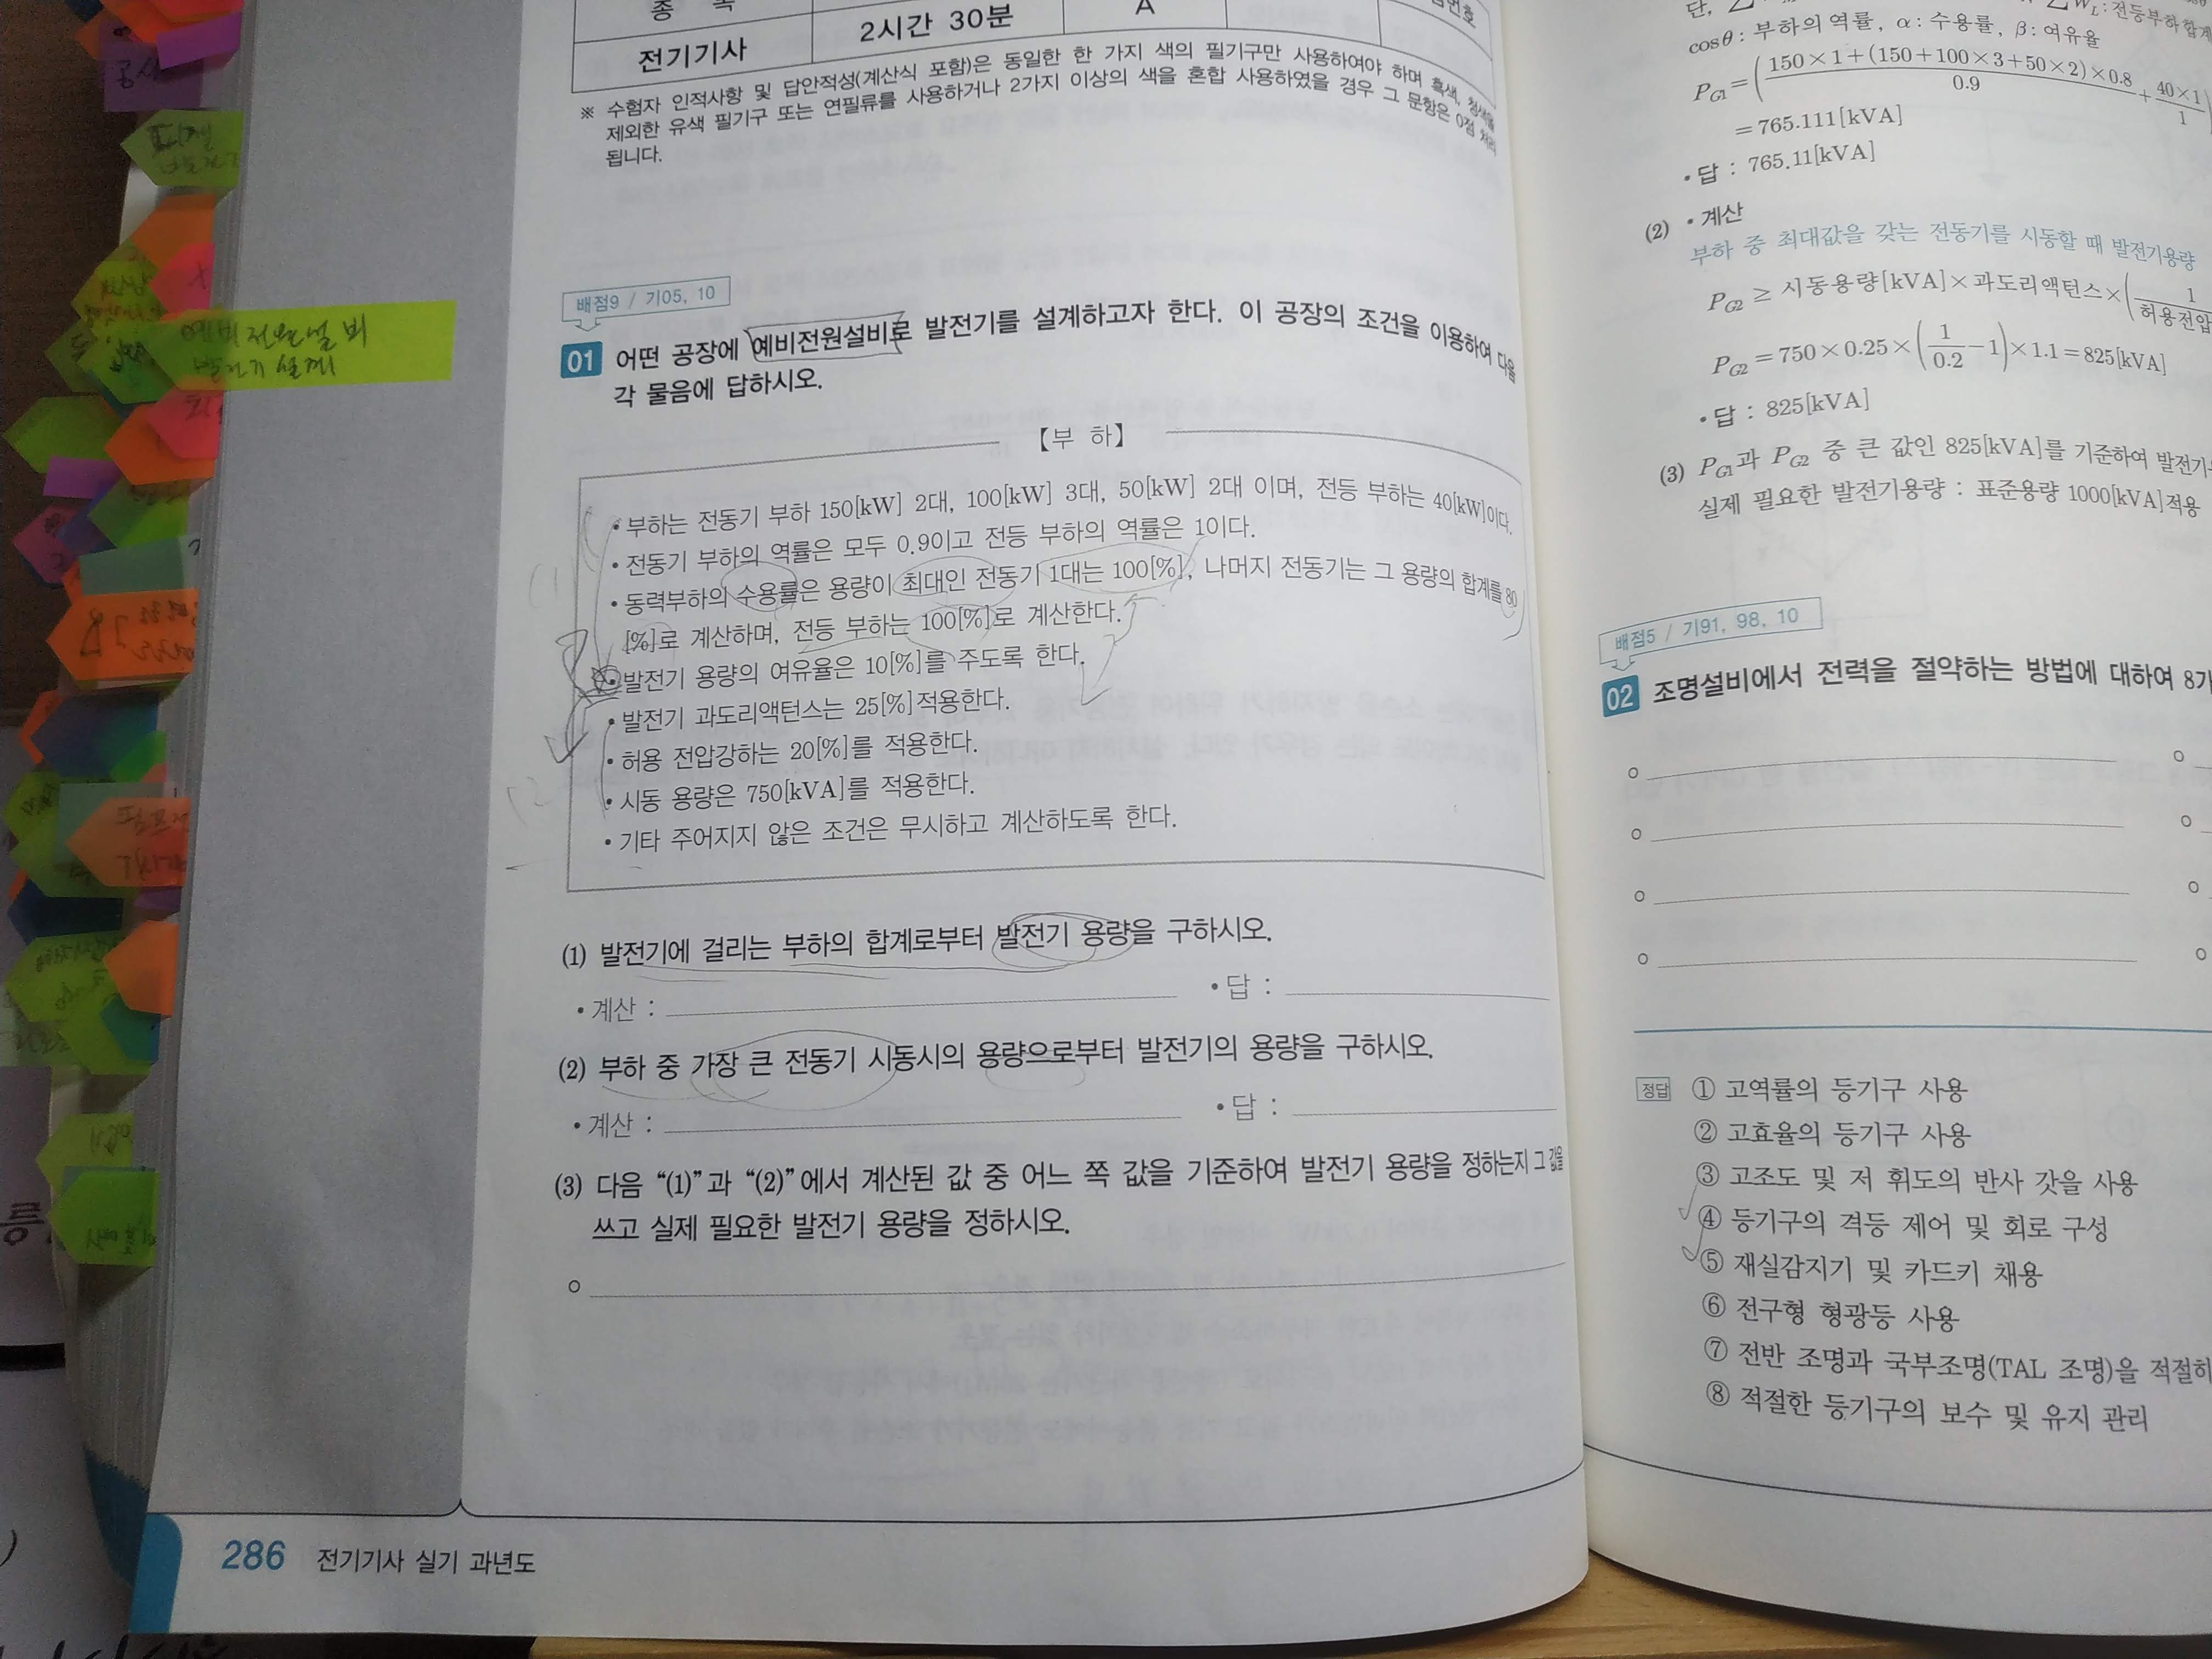 종 목
전기기사
2시간 30분
A
※ 수험자 인적사항 및 답안작성(계산식 포함)은 동일한 한 가지 색의 필기구만 사용하여야 하며 흑색, 청색을
제외한 유색 필기구 또는 연필류를 사용하거나 2가지 이상의 색을 혼합 사용하였을 경우 그 문항은 0점 처리
됩니다.
예비전원설비
발전기 설계
배점9 / 기05, 10
01 어떤 공장에 예비전원설비로 발전기를 설계하고자 한다. 이 공장의 조건을 이용하여 다음
각 물음에 답하시오.
【부 하】
• 부하는 전동기 부하 150[kW] 2대, 100[kW] 3대, 50[kW] 2대 이며, 전등 부하는 40[kW]이다.
• 전동기 부하의 역률은 모두 0.9이고 전등 부하의 역률은 1이다.
• 동력부하의 수용률은 용량이 최대인 전동기 1대는 100[%], 나머지 전동기는 그 용량의 합계를 80
[%]로 계산하며, 전등 부하는 100[%]로 계산한다.
• 발전기 용량의 여유율은 10[%]를 주도록 한다.
• 발전기 과도리액턴스는 25[%]적용한다.
• 허용 전압강하는 20[%]를 적용한다.
• 시동 용량은 750[kVA]를 적용한다.
• 기타 주어지지 않은 조건은 무시하고 계산하도록 한다.
(1) 발전기에 걸리는 부하의 합계로부터 발전기 용량을 구하시오.
• 계산 : • 답 :
(2) 부하 중 가장 큰 전동기 시동시의 용량으로부터 발전기의 용량을 구하시오.
• 계산 : • 답 :
(3) 다음 “(1)”과 “(2)”에서 계산된 값 중 어느 쪽 값을 기준하여 발전기 용량을 정하는지 그 값을
쓰고 실제 필요한 발전기 용량을 정하시오.
286 전기기사 실기 과년도
단, : 전등부하합계
cosθ : 부하의 역률, α : 수용률, β : 여유율
P_G1 = (150×1+(150+100×3+50×2)×0.8 / 0.9 + 40×1 / 1)
= 765.111[kVA]
• 답 : 765.11[kVA]
(2) • 계산
부하 중 최대값을 갖는 전동기를 시동할 때 발전기용량
P_G2 ≥ 시동용량[kVA]×과도리액턴스×(1 / 허용전압
P_G2 = 750×0.25×(1/0.2 −1)×1.1 = 825[kVA]
• 답 : 825[kVA]
(3) P_G1과 P_G2 중 큰 값인 825[kVA]를 기준하여 발전기
실제 필요한 발전기용량 : 표준용량 1000[kVA]적용
배점5 / 기91, 98, 10
02 조명설비에서 전력을 절약하는 방법에 대하여 8가
정답 ① 고역률의 등기구 사용
② 고효율의 등기구 사용
③ 고조도 및 저 휘도의 반사 갓을 사용
④ 등기구의 격등 제어 및 회로 구성
⑤ 재실감지기 및 카드키 채용
⑥ 전구형 형광등 사용
⑦ 전반 조명과 국부조명(TAL 조명)을 적절히
⑧ 적절한 등기구의 보수 및 유지 관리